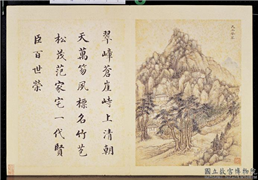 翠峰蒼崖峙上清朝
天萬笏風標名竹苞
松茂范家宅一代賢
臣百世榮
國立故宮博物院